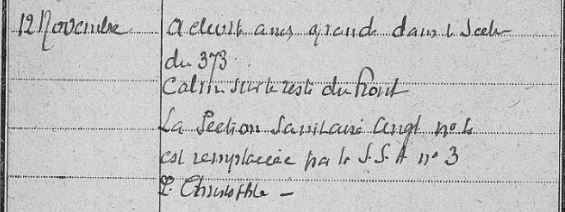 12 Novembre
Activité assez grande dans le Secteur
du 373
Calme sur le reste du front
La Section Sanitaire Angl no 4
est remplacée par la S.S.A no 3
P. Christophle -